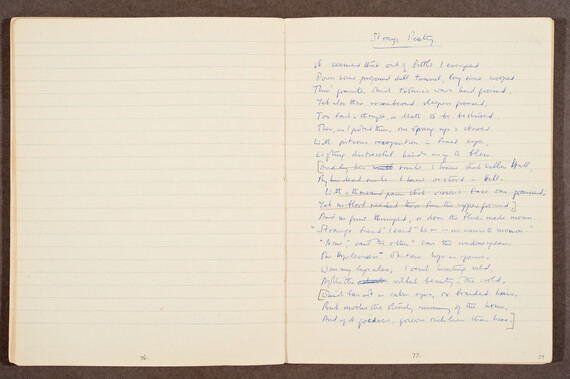 Strange Meeting
It seemed that out of battle I escaped
Down some profound dull tunnel, long since scooped
Thro' granites which titanic wars had groined.
Yet also there encumbered sleepers groaned,
Too fast in thought, or death to be bestirred.
Then, as I probed them, one sprang up & stared
With piteous recognition in fixed eyes,
Lifting distressful hands as if to bless.
[And by his smile I knew that sullen Hall,
By his dead smile I knew we stood in Hell.
With a thousand pains that vision's face was grained,
Yet no blood reached there from the upper ground,]
And no guns thumped, or down the flues made moan.
"Strange friend" I said "Here is no cause to mourn"
"None," said the other "Save the undone years,
The hopelessness. Whatever hope is yours,
Was my life also; I went hunting wild,
After the wildest beauty in the world,
[Which lies not in calm eyes, or braided hair,
But mocks the steady running of the hour,
And if it grieves, grieves richlier than here.]
76.
77.